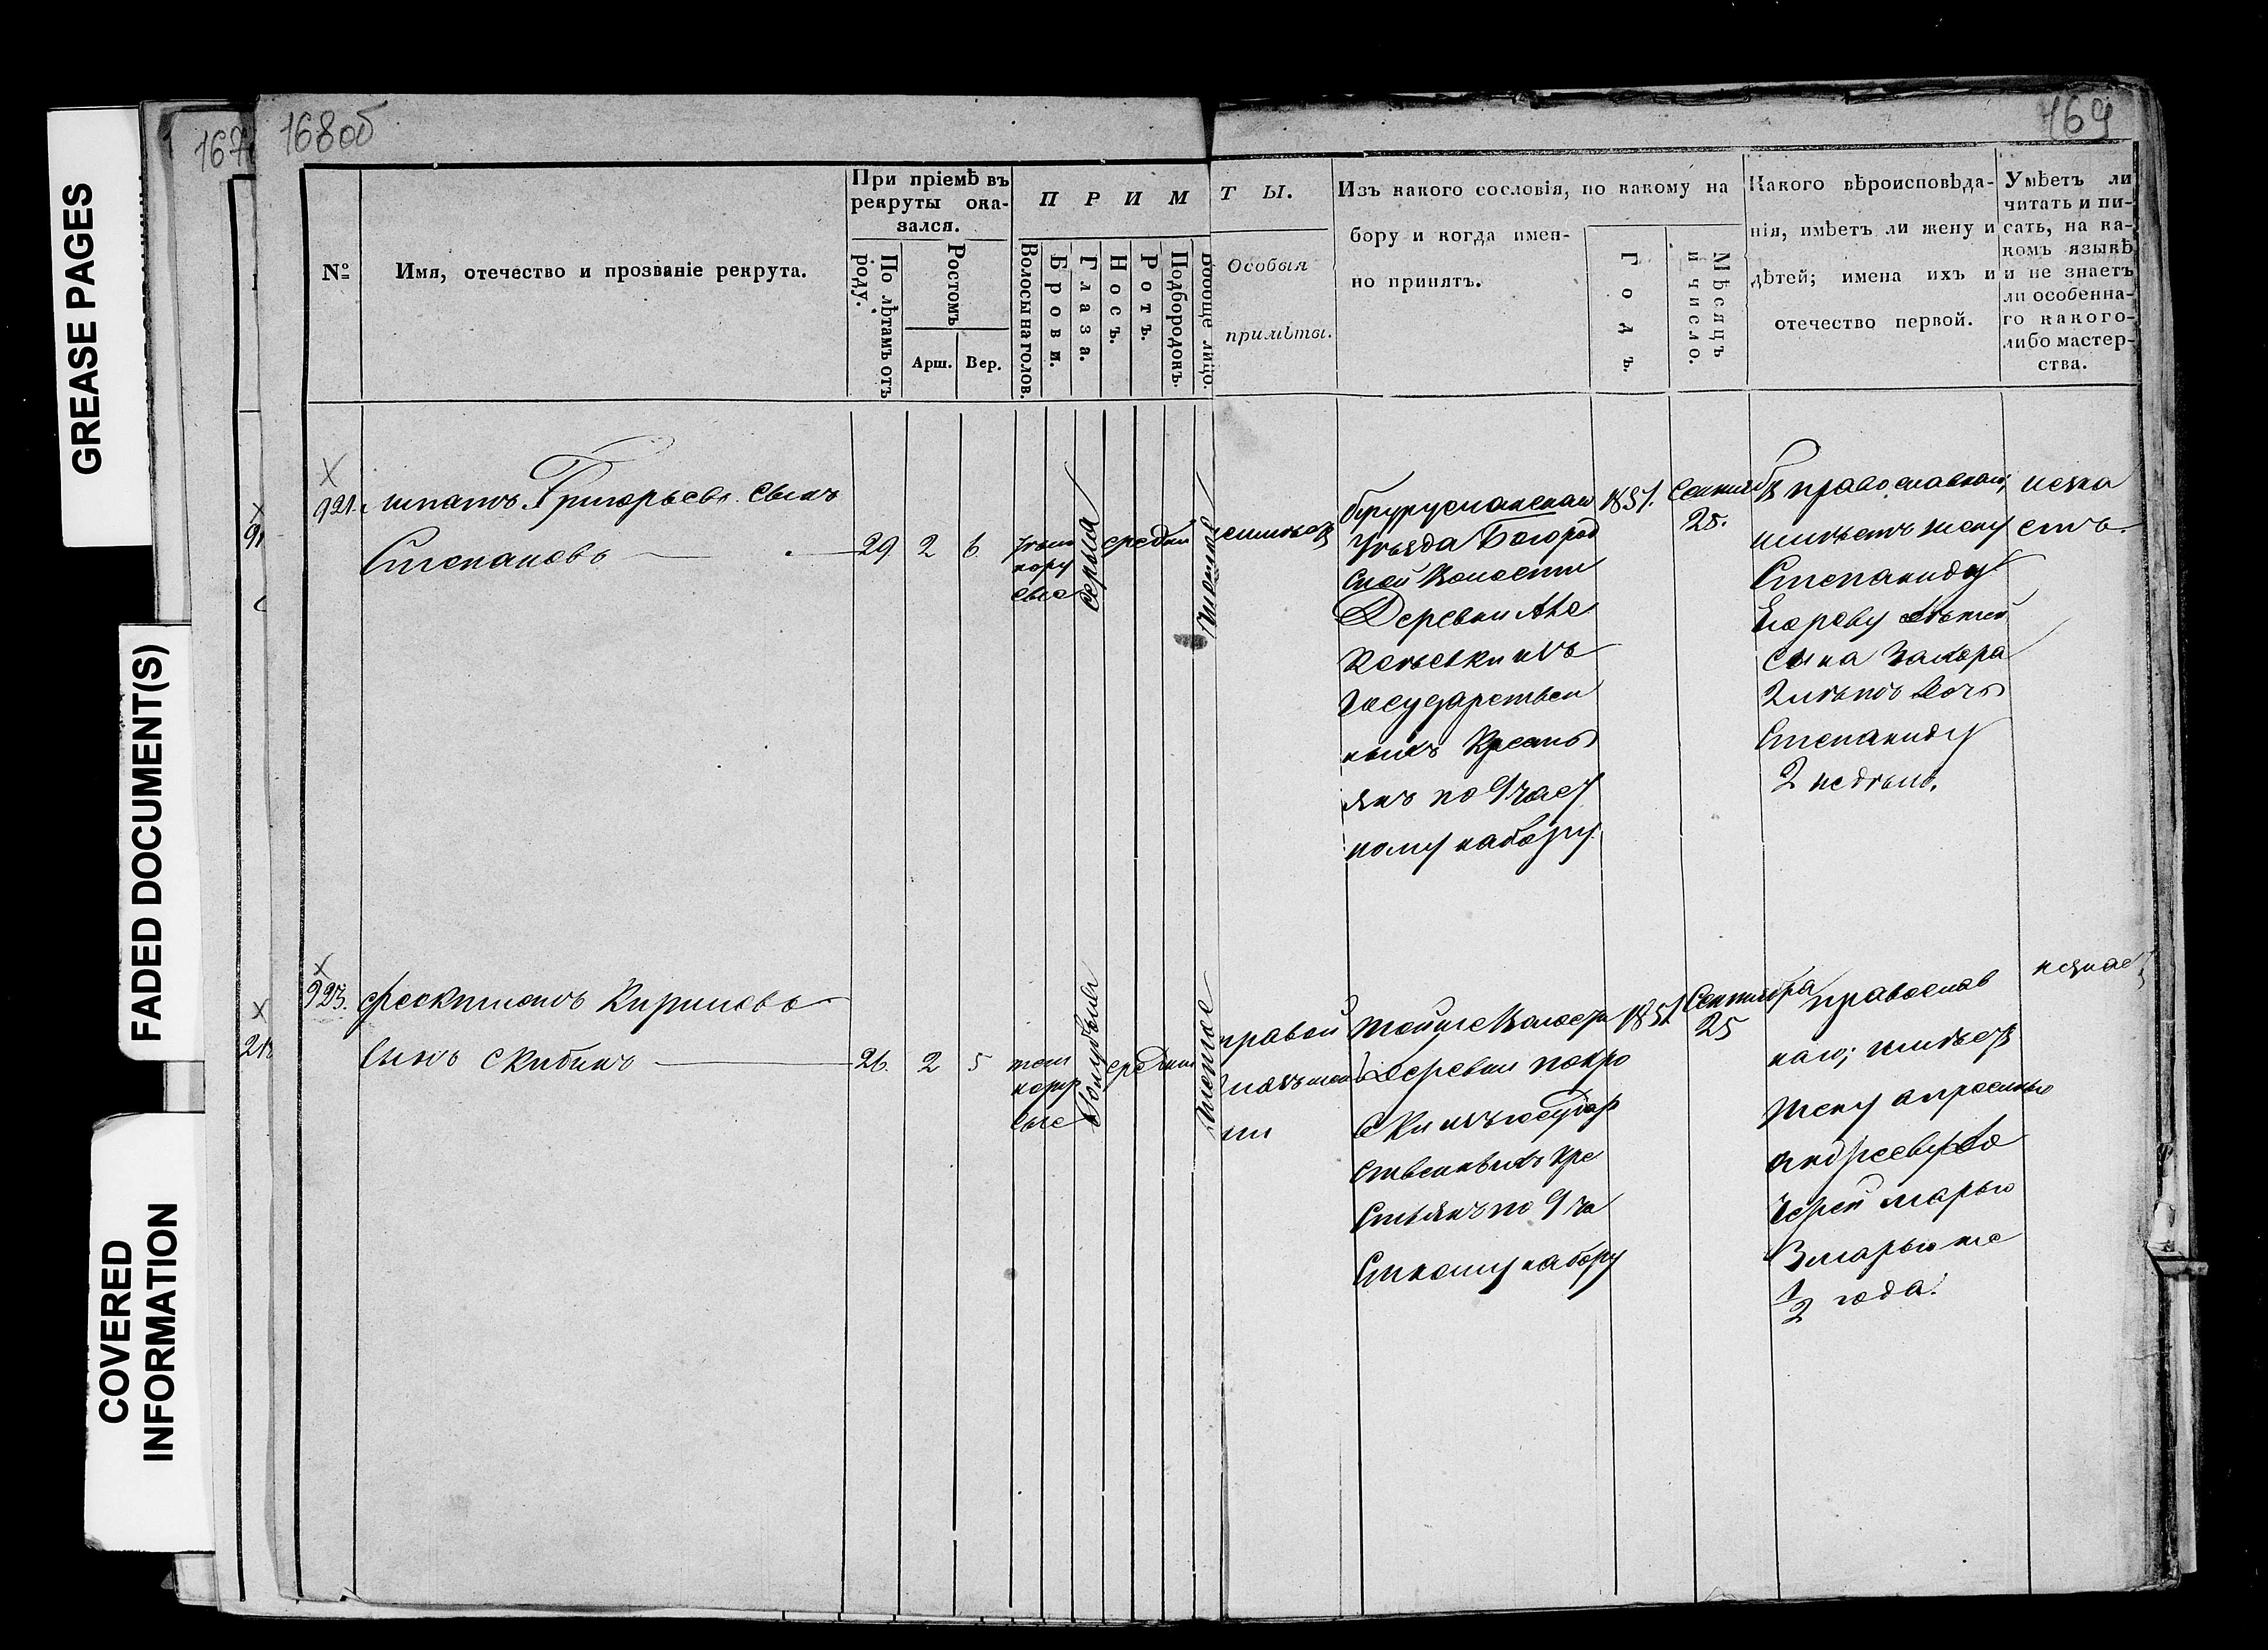 GREASE PAGES
FADED DOCUMENT(S)
COVERED
INFORMATION
167
168об
169
№
Имя, отечество и прозваніе рекрута.
При пріемѣ въ
рекруты ока-
зался.
По лѣтамъ отъ
роду.
Ростомъ
Арш.
Вер.
П Р И М
Т Ы.
Волосы на голов.
Брови.
Глаза.
Носъ.
Ротъ.
Подбородокъ.
Вообще лицо.
Особыя
примѣты.
Изъ какого сословія, по какому на
бору и когда имен-
но принятъ.
Годъ.
Мѣсяцъ
и число.
Какого вѣроисповѣда-
нія, имѣетъ ли жену и
дѣтей; имена ихъ и
отечество первой.
Умѣетъ ли
читать и пи-
сать, на ка-
комъ языкѣ
и не знаетъ
ли особенна-
го какого-
либо мастер-
ства.
921. Григорьевъ сынъ
Степановъ 29 2 6
русые
серые
средни
чистое
Бугурусланскаго
Уѣзда Богород
ской Волости
Деревни
Государствен
ныхъ Кресть
янъ по 9 част
ному набору
1851. Сентяб
25.
православнаго;
имѣетъ жену
Степаниду
Егорову дѣтей
сына Захара
2 лѣтъ дочь
Степаниду
2 недѣль.
923. Феоктистъ Кириловъ
сынъ Скибинъ 26 2 5
темно
русые
голубые
средни
чистое
правой
той же Волости
Деревни Покро
вки изъ государ
ственныхъ кре
стьянъ по 9 ча
стному набору
1851 Сентября
25
православ
наго; имѣетъ
жену
Андрееву до
черей Марью
3 Марью же
1/2 года.
не знает